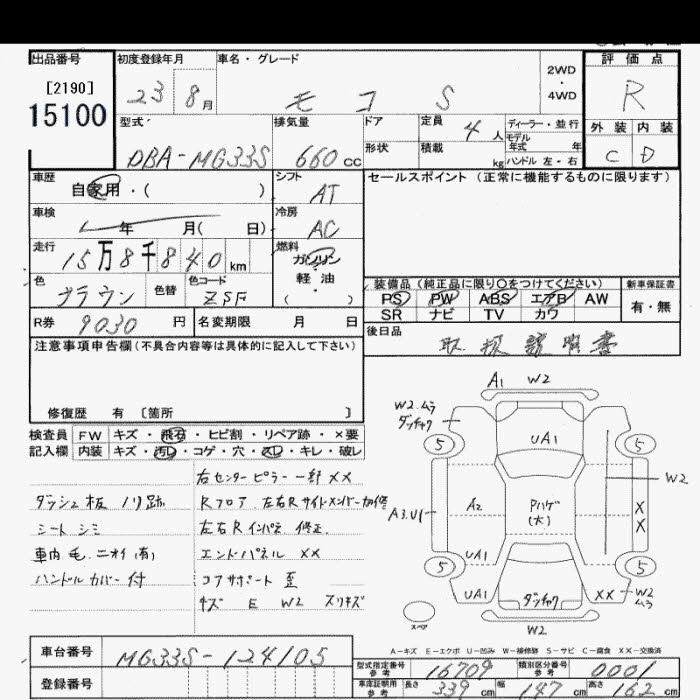 出品番号
[2190]
15100
初度登録年月
23 8月
車名・グレード
モコ S
2WD
・
4WD
評価点
R
外装 内装
C D
型式
DBA-MG33S
排気量
660 cc
ドア
形状
定員
4人
積載
kg
ディーラー・並行
モデル
年式 年
ハンドル 左・右
車歴
自家用・( )
シフト
AT
車検
年 月( 日)
冷房
AC
走行
15万8千840 km
燃料
ガソリン
・
軽油
・
( )
色
ブラウン
色替
色コード
ZSF
R券 9030 円
名変期限 月 日
セールスポイント (正常に機能するものに限ります)
装備品 (純正品に限り○をつけてください)
PS PW ABS エアB AW
SR ナビ TV カワ
新車保証書
有・無
後日品
取扱説明書
注意事項申告欄(不具合内容等は具体的に記入して下さい)
修復歴 有 〔箇所 〕
検査員
記入欄
FW キズ・飛石・ヒビ割・リペア跡・×要
内装 キズ・汚レ・コゲ・穴・凹レ・キレ・破レ
ダッシュ板 ノリ跡
シート シミ
車内 毛 ニオイ(有)
ハンドルカバー付
右センターピラー一部 XX
Rフロア 左右Rサイドメンバー加修
左右Rインパネ 修正
エンドパネル XX
コアサポート 歪
キズ E W2 スリキズ
A1 W2
W2ムラ
ダッチャク
5 5
UA1
W2
A3.U1
A2
Pハゲ
(大)
X
X
UA1
5 5
UA1
ダッチャク
XX W2
ムラ
W2
スペア
A-キズ E-エクボ U-凹み W-補修跡 S-サビ C-腐食 XX-交換済
車台番号
MG33S-124105
登録番号
型式指定番号
参考
16709
類別区分番号
参考
0001
車庫証明用
参考
長さ 339 cm
幅 147 cm
高さ 162 cm